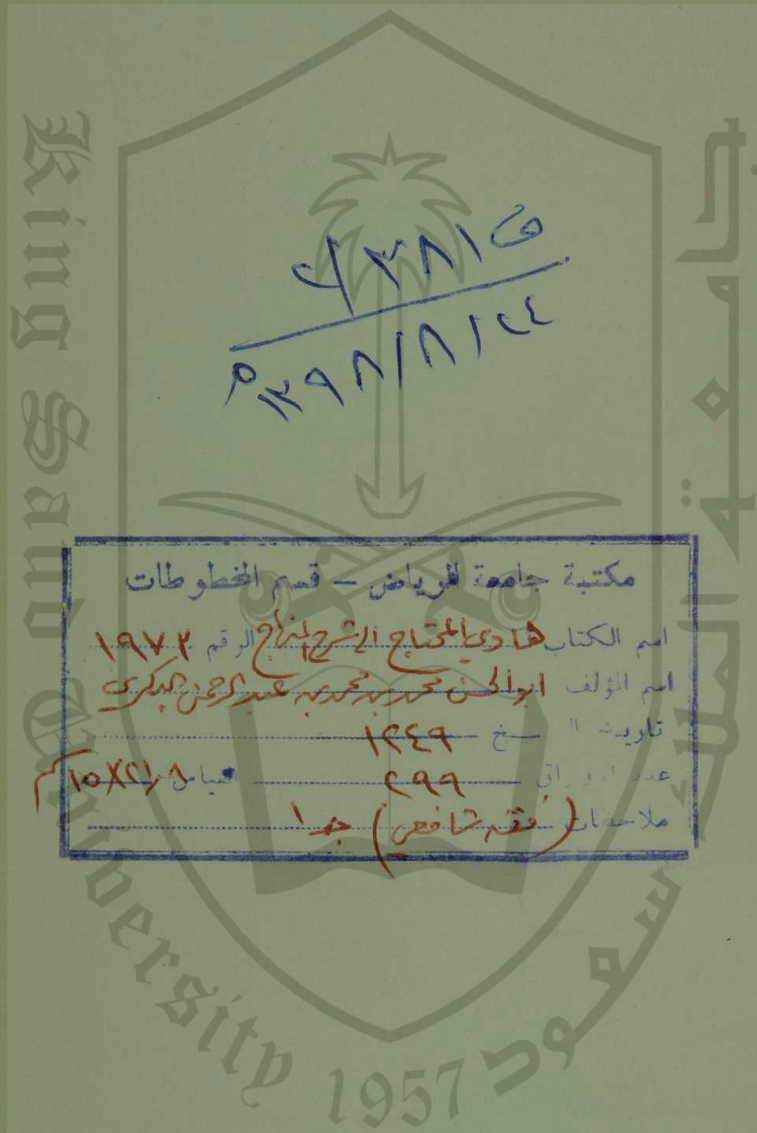 ف ٣٨١ ك
٢٤/٨/١٣٩٨ م
مكتبة جامعة الرياض – قسم المخطوطات
اسم الكتاب هادي المحتاج الى شرح المنهاج الرقم ١٩٧٢
اسم المؤلف ابوالحسن محمد بن محمد بن عبد الرحمن البكري
تاريخ النسخ ١٢٤٩
عدد الاوراق ٢٩٩ مقياس ٢١٫٨X١٥ كم
ملاحظات (فقه شافعي) جـ ١
King Saud University 1957
جامعة الملك سعود